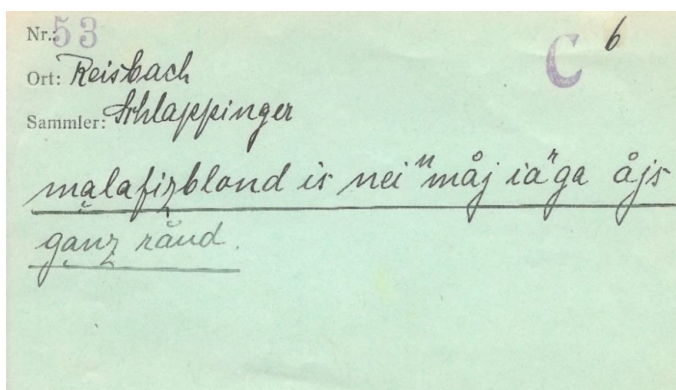 Nr.: 53 C 6
Ort: Reisbach
Sammler: Schlappinger
malafizblond is nei "måj ia"ga åjs
ganz rånd.